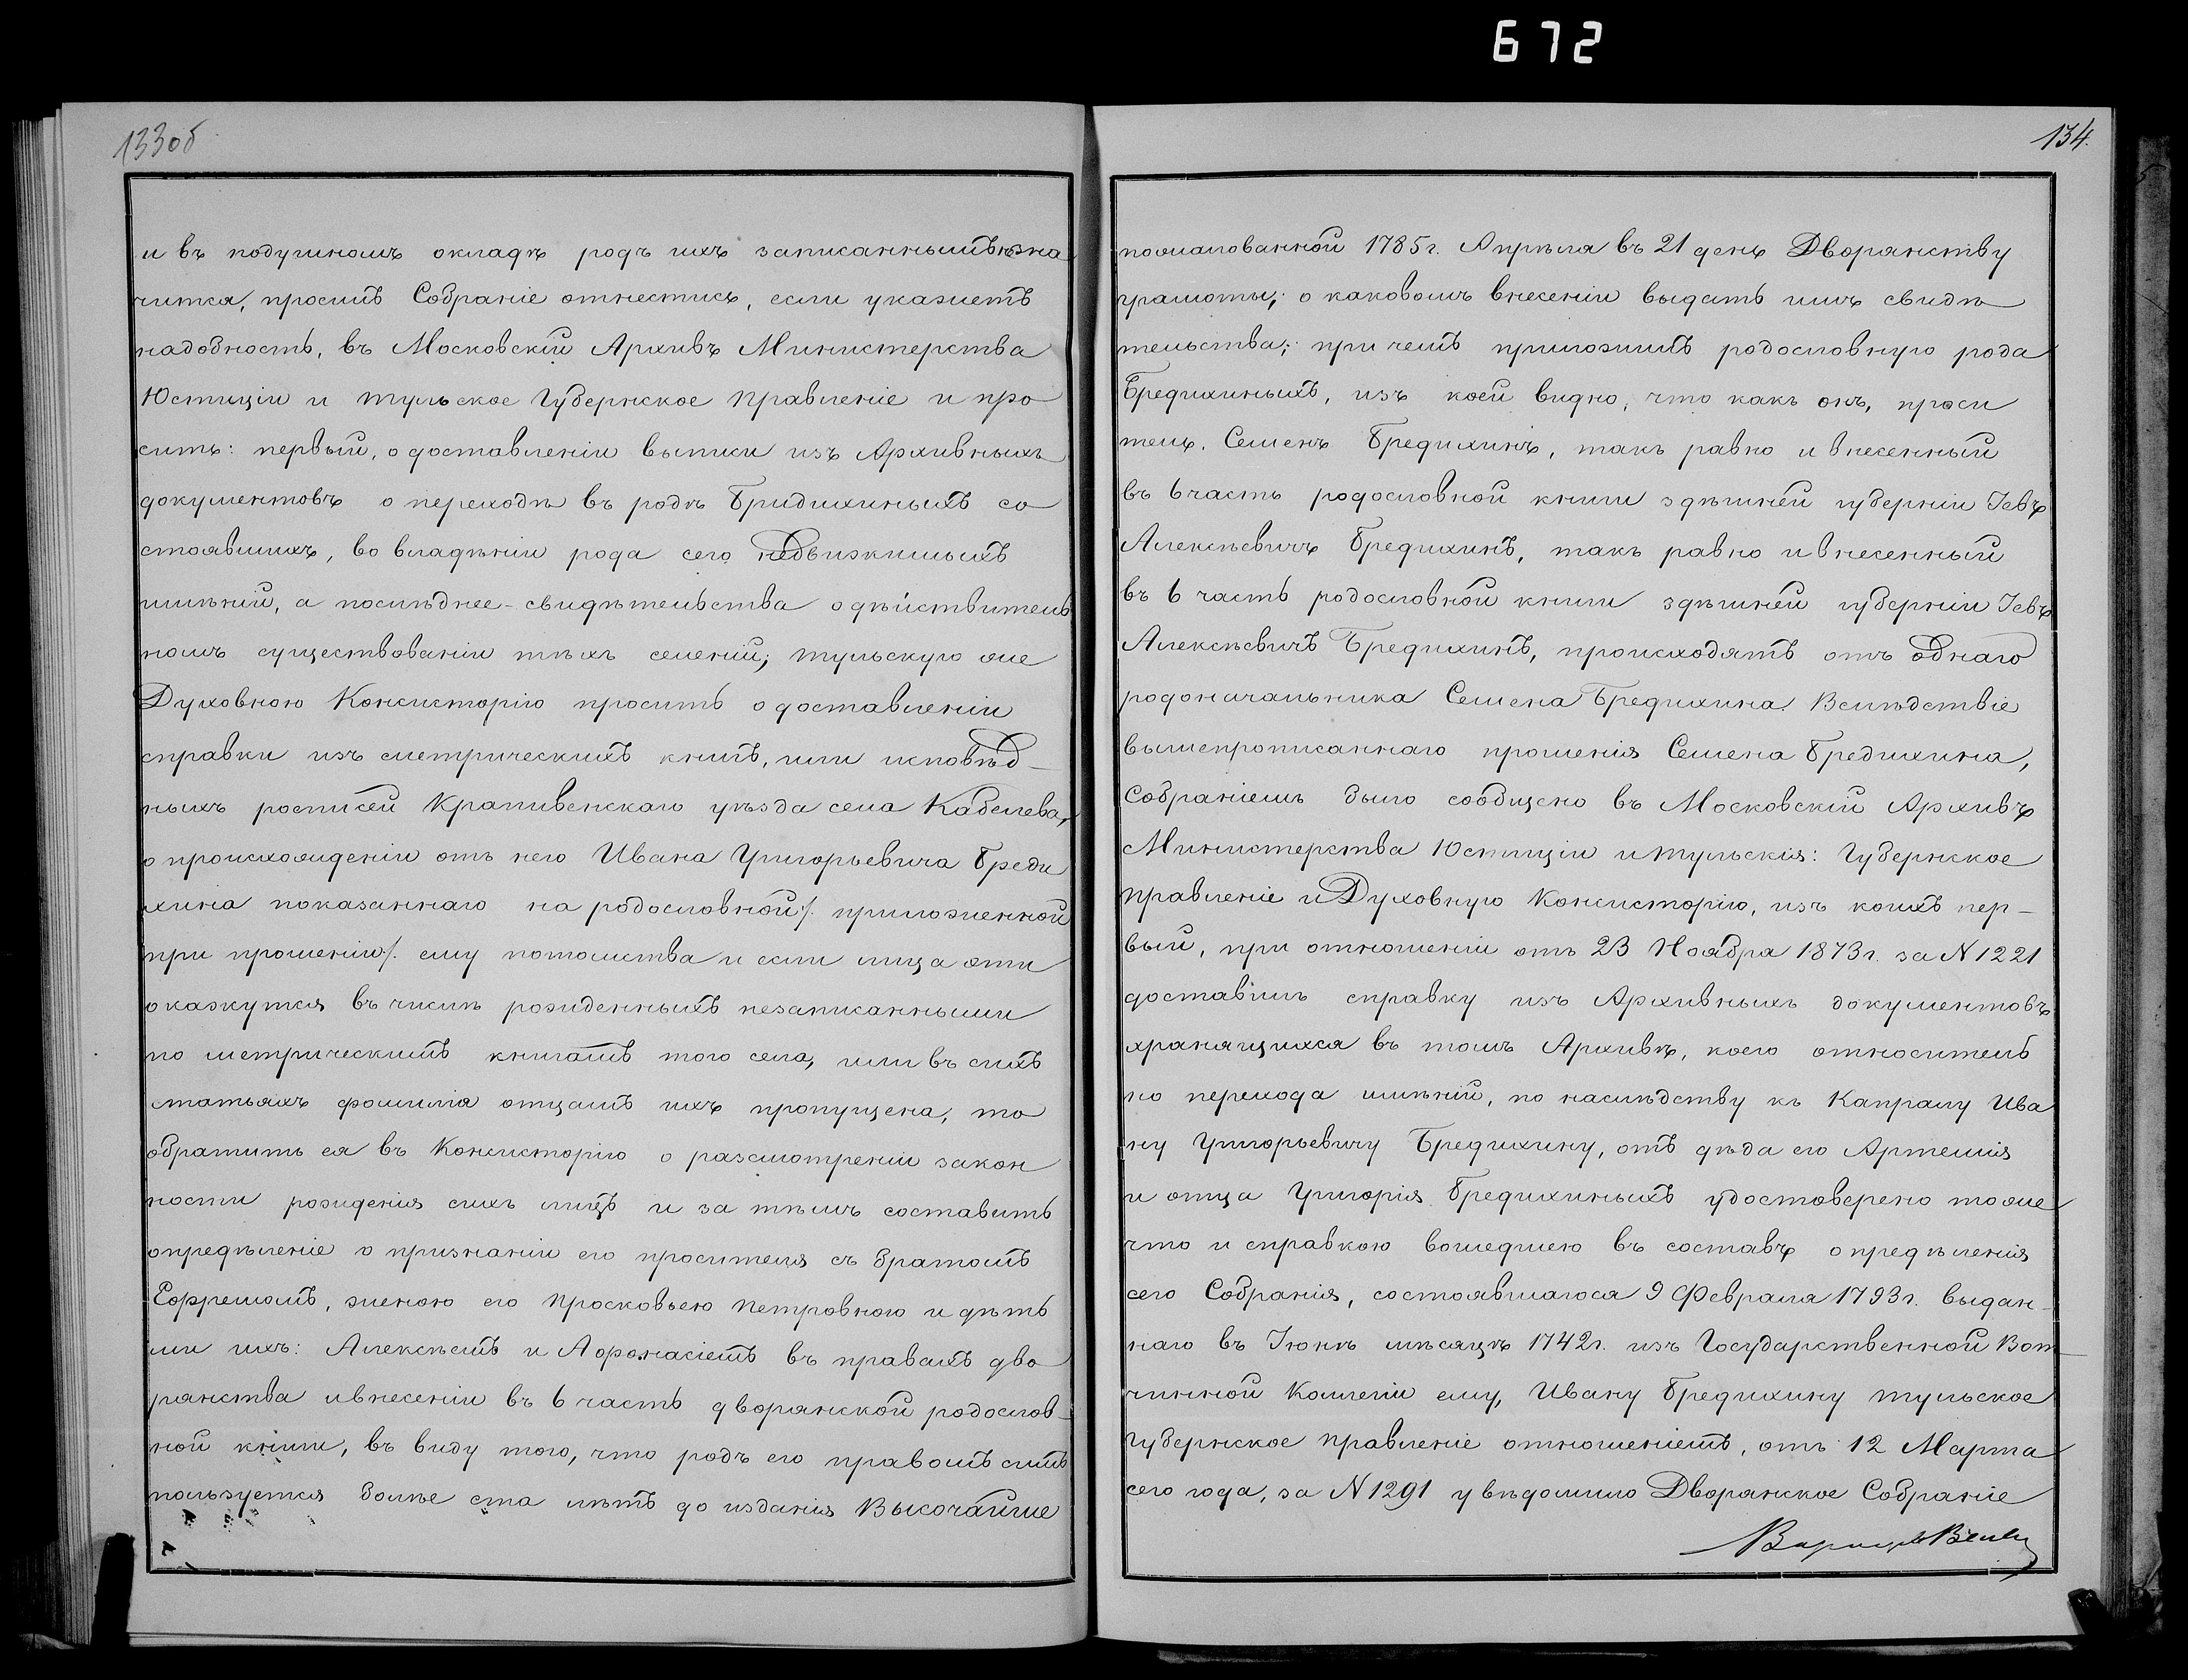 672
133об
и въ подушномъ окладѣ родъ ихъ записаннымъ не зна
чится, проситъ Собраніе отнестись, если укажетъ
надобность, въ Московскій Архивъ Министерства
Юстиціи и Тульское Губернское Правленіе и про
сить: первый, о доставленіи выписи изъ Архивныхъ
документовъ о переходѣ въ родѣ Бридихиныхъ со
стоявшихъ, во владѣніи рода сего недвижимыхъ
имѣній, а послѣднее - свидѣтельства о дѣйствитель
номъ существованіи тѣхъ селеній; Тульскую же
Духовною Консисторію просить о доставленіи
справки изъ метрическихъ книгъ, или исповѣд-
ныхъ росписей Крапивенскаго уѣзда села Кабелева,
о происхожденіи отъ него Ивана Григорьевича Бреди
хина показаннаго на родословной /. приложенной
при прошеніи /. ему потомства и если лица эти
окажутся въ числѣ рожденныхъ незаписанными
по метрическимъ книгамъ того села, или въ сихъ
статьяхъ фомилія отцамъ ихъ пропущена, то
обратить ся въ Консисторію о разсмотреніи закон
ности рожденія сихъ лицъ и за тѣмъ составить
опредѣленіе о признаніи его просителя съ братомъ
Ефремомъ, женою его Просковьею Петровною и дѣть
ми ихъ: Алексѣемъ и Афонасіемъ въ правахъ дво
рянства и внесеніи въ 6 часть дворянской родослов-
ной книги, въ виду того, что родъ его правомъ симъ
пользуется болѣе ста лѣтъ до изданія Высочайше
134.
пожалованной 1785г. Апрѣля въ 21 день Дворянству
грамоты; о каковомъ внесеніи выдать имъ свидѣ
тельства; при чемъ приложилъ родословную рода
Бредихиныхъ, изъ коей видно, что какъ онъ, проси
тель. Семенъ Бредихинъ, такъ равно и внесенный
въ 6 часть родословной книги здѣшней губерніи Іевъ
Алексѣевичъ Бредихинъ, такъ равно и внесенный
въ 6 часть родословной книги здѣшней губерніи Іевъ
Алексѣевичъ Бредихинъ, происходятъ отъ однаго
родоначальника Семена Бредихина. Вслѣдствіе
вышепрописаннаго прошенія Семена Бредихина,
Собраніемъ было сообщено въ Московскій Архивъ
Министерства Юстиціи и Тульскія: Губернское
Правленіе и Духовную Консисторію, изъ коихъ пер-
вый, при отношеніи отъ 23 Ноября 1873г. за N 1221
доставилъ справку изъ Архивныхъ документовъ
хранящихся въ томъ Архивѣ, коего относитель
но перехода имѣній, по наслѣдству къ Капралу Ива
ну Григорьевичу Бредихину, отъ дѣда его Артемія
и отца Григорія Бредихиныхъ удостоверено тоже
что и справкою вошедшею въ составъ опредѣленія
сего Собранія, состоявшагося 9 Февраля 1793г. выдан-
наго въ Іюнѣ мѣсяцѣ 1742г. изъ Государственной Вот-
чинной Коллегіи ему, Ивану Бредихину Тульское
Губернское Правленіе отношеніемъ, отъ 12 Марта
сего года, за N 1291 увѣдомило Дворянское Собраніе